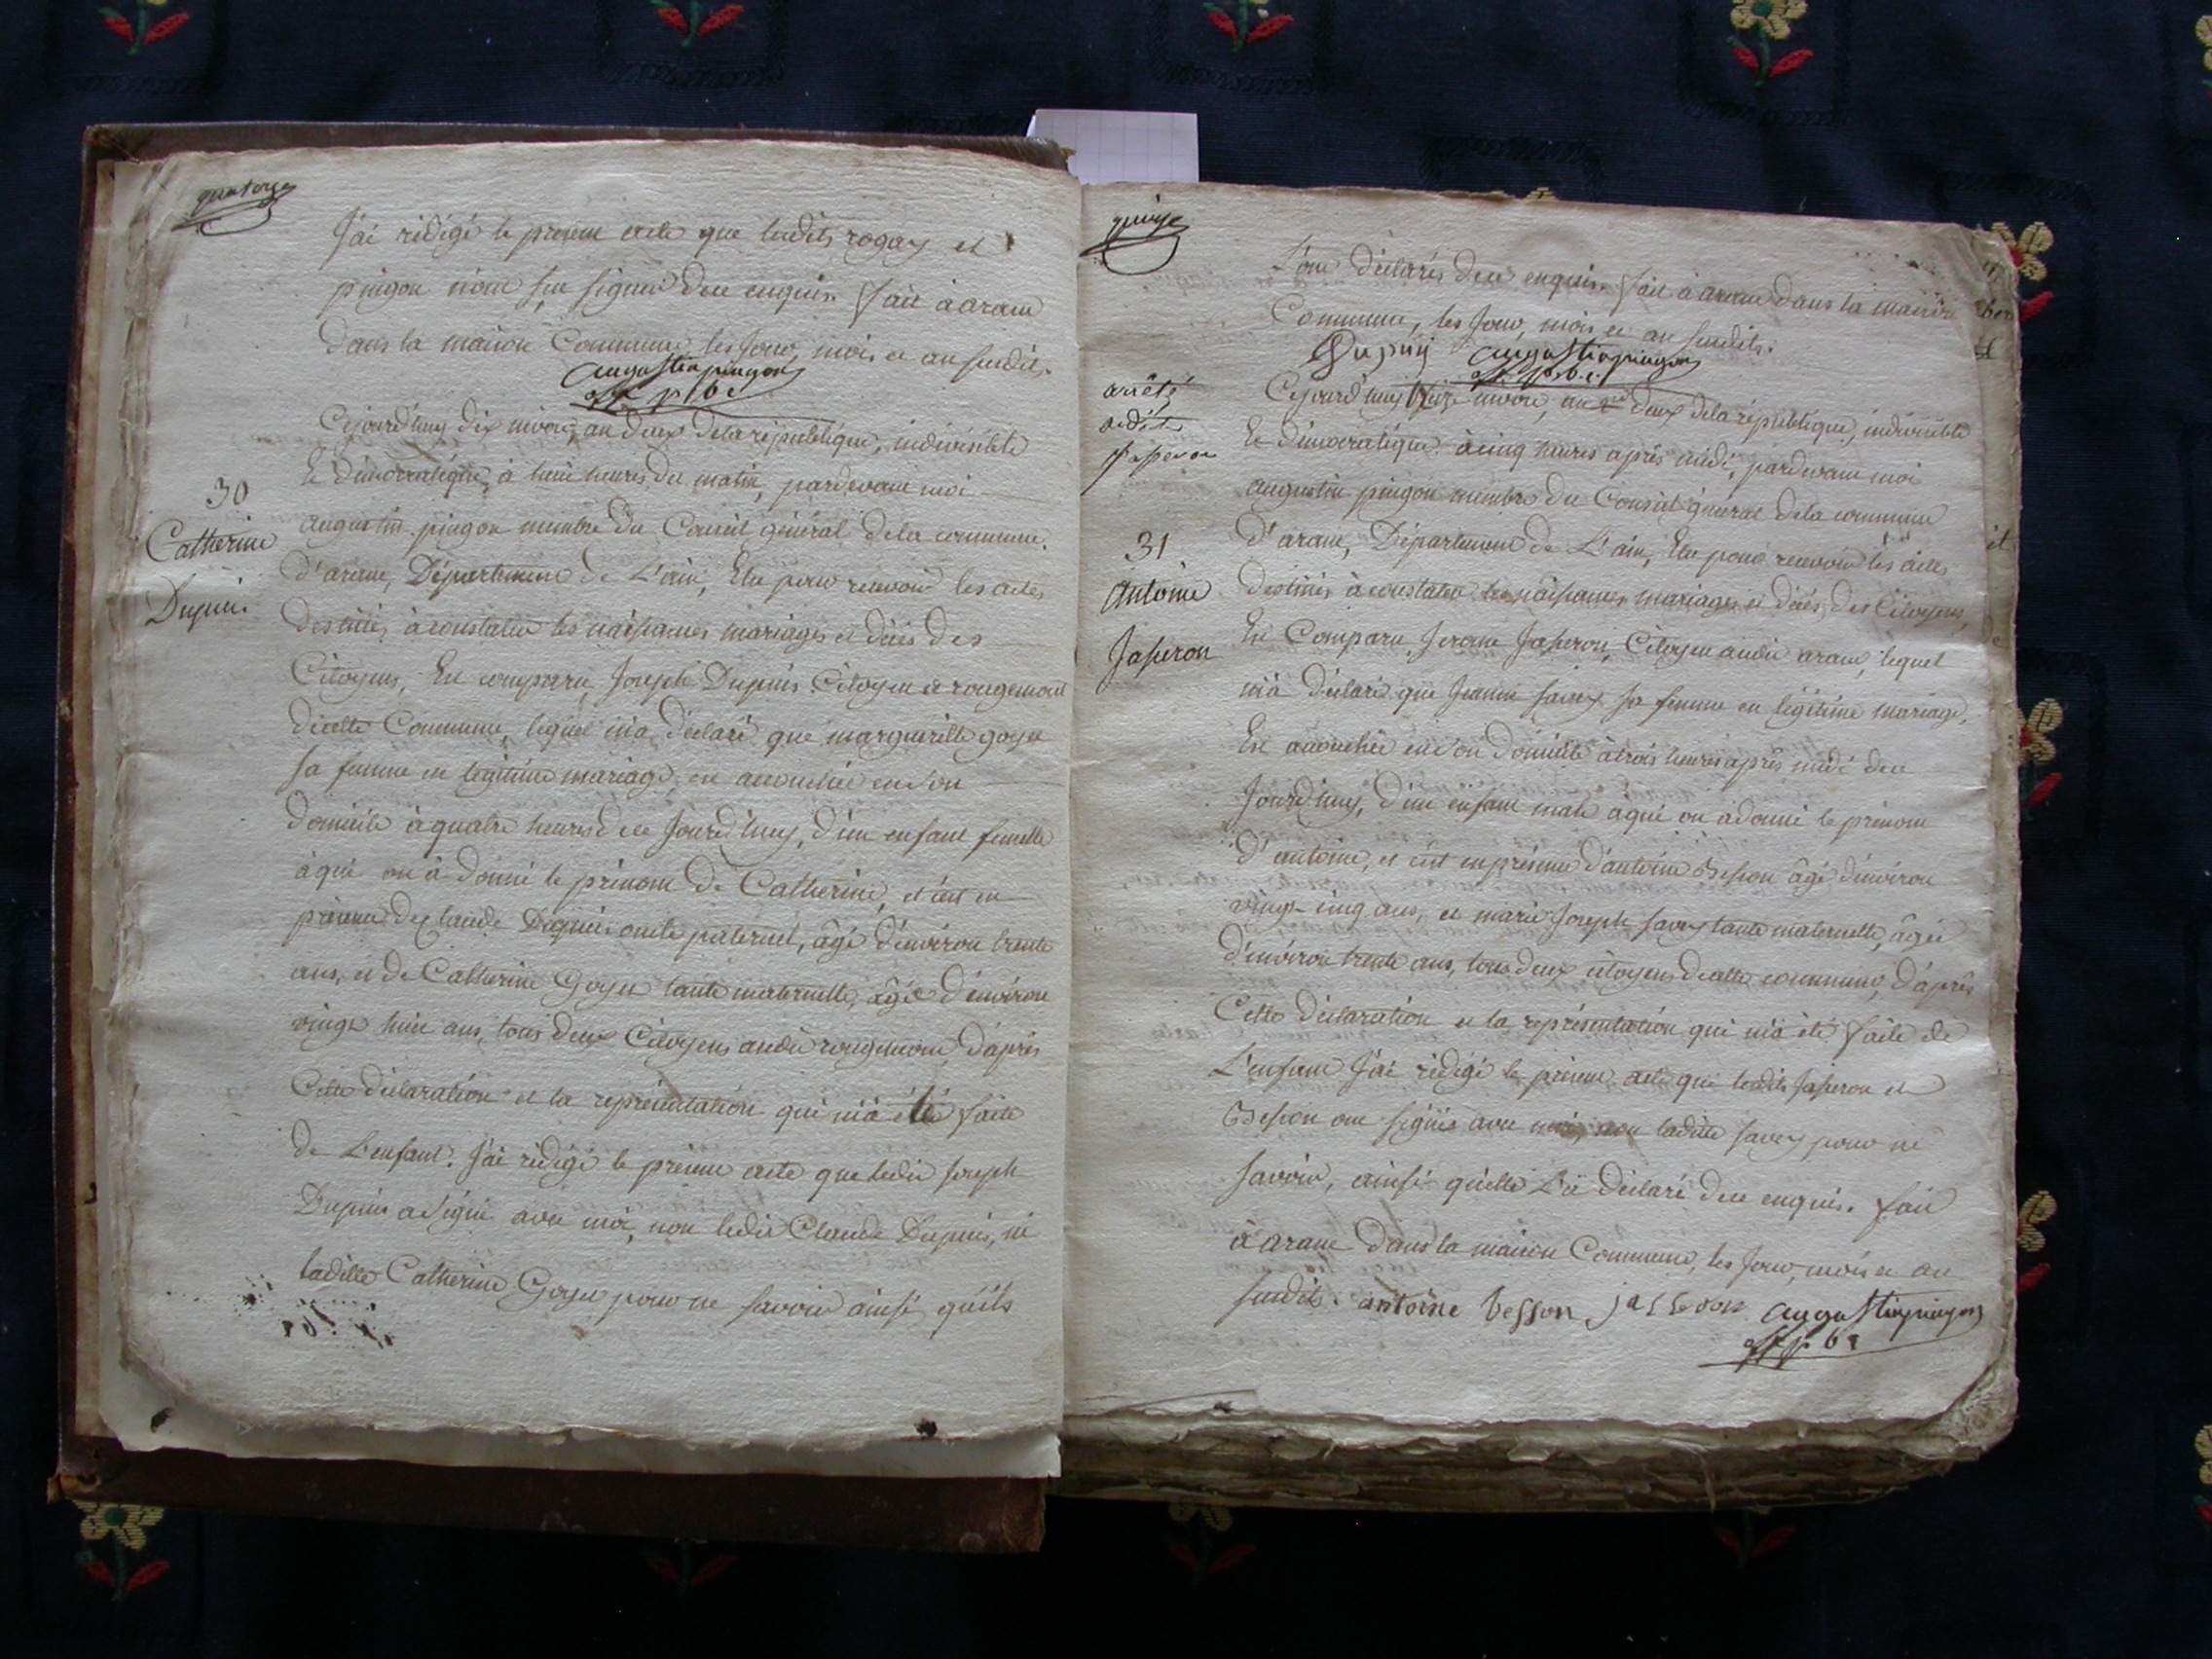 quatorze
J'ai rédigé le présent acte que lesdits rogay et
pingon n'ont su signer de ce enquis. fait à aranc
dans la maison Commune, les jour, mois et an susdits.
augustin pingon
off. pbc
Cejourd'huy dix nivose, an deux de la république, indivisible
Et démocratique, à huit heures du matin, pardevant moi
30
augustin pingon membre du Conseil général de la commune
Catherine
d'aranc, Département de L'ain, Elu pour recevoir les actes
Dupuis
destinés à constater les naissances mariages et décès des
Citoyens, Est comparu Joseph Dupuis Citoyen à rougemont
dicelle Commune, lequel m'a déclaré que margueritte goyet
sa femme en légitime mariage, est accouchée en son
domicile à quatre heures de ce Jourd'huy, d'un enfant femelle
à qui on à donné le prénom de Catherine, et c'est en
présence de Claude Dupuis oncle paternel, âgé d'environ trente
ans, et de Catherine Goyet tante maternelle, âgée d'environ
vingt huit ans, tous deux Citoyens audit rougemont, d'après
Cette déclaration et la représentation qui m'à été faite
de L'enfant. J'ai rédigé le présent acte que ledit Joseph
Dupuis a signé avec moi, non ledit Claude Dupuis, ni
ladille Catherine Goyet pour ne savoir ainsi qu'ils
quinze
L'ont déclarés de ce enquis. fait à aranc dans la maison
Commune, les Jour, mois et an susdits.
Dupuij augustin pingon
off. p.b.c.
arrêté
Cejourd'huy nivose, an deux de la république, indivisible
Et démocratique. à cinq heures après midi, pardevant moi
augustin pingon membre du Conseil général de la commune
31
d'aranc, Département de L'ain, Elu pour recevoir les actes
Antoine
destinés à constater les naissances mariages et décès, des Citoyens,
Jaseron
Est Comparu Jerome Jaseron, Citoyen audit aranc, lequel
m'à déclaré que Jeanne savey sa femme en légitime mariage,
Est accouchée en son domicile à trois heures après midi de ce
Jourd'huy, d'un enfant male à qui on à donné le prénom
d'antoine, et c'est en présence d'antoine Besson âgé d'environ
vingt-cinq ans, et marie Joseph savey tante maternelle, âgée
d'environ trente ans, tous deux citoyens dicelle commune, d'après
Cette déclaration et la représentation qui m'à été faite de
L'enfant J'ai rédigé le présent acte que lesdits Jaseron et
Besson ont signés avec moi, non ladille savey pour ne
savoir, ainsi qu'elle L'à déclaré de ce enquis. fait
à aranc dans la maison Commune, les Jour, mois et an
susdits. antoine besson jasseron augustin pingon
off. p. bc